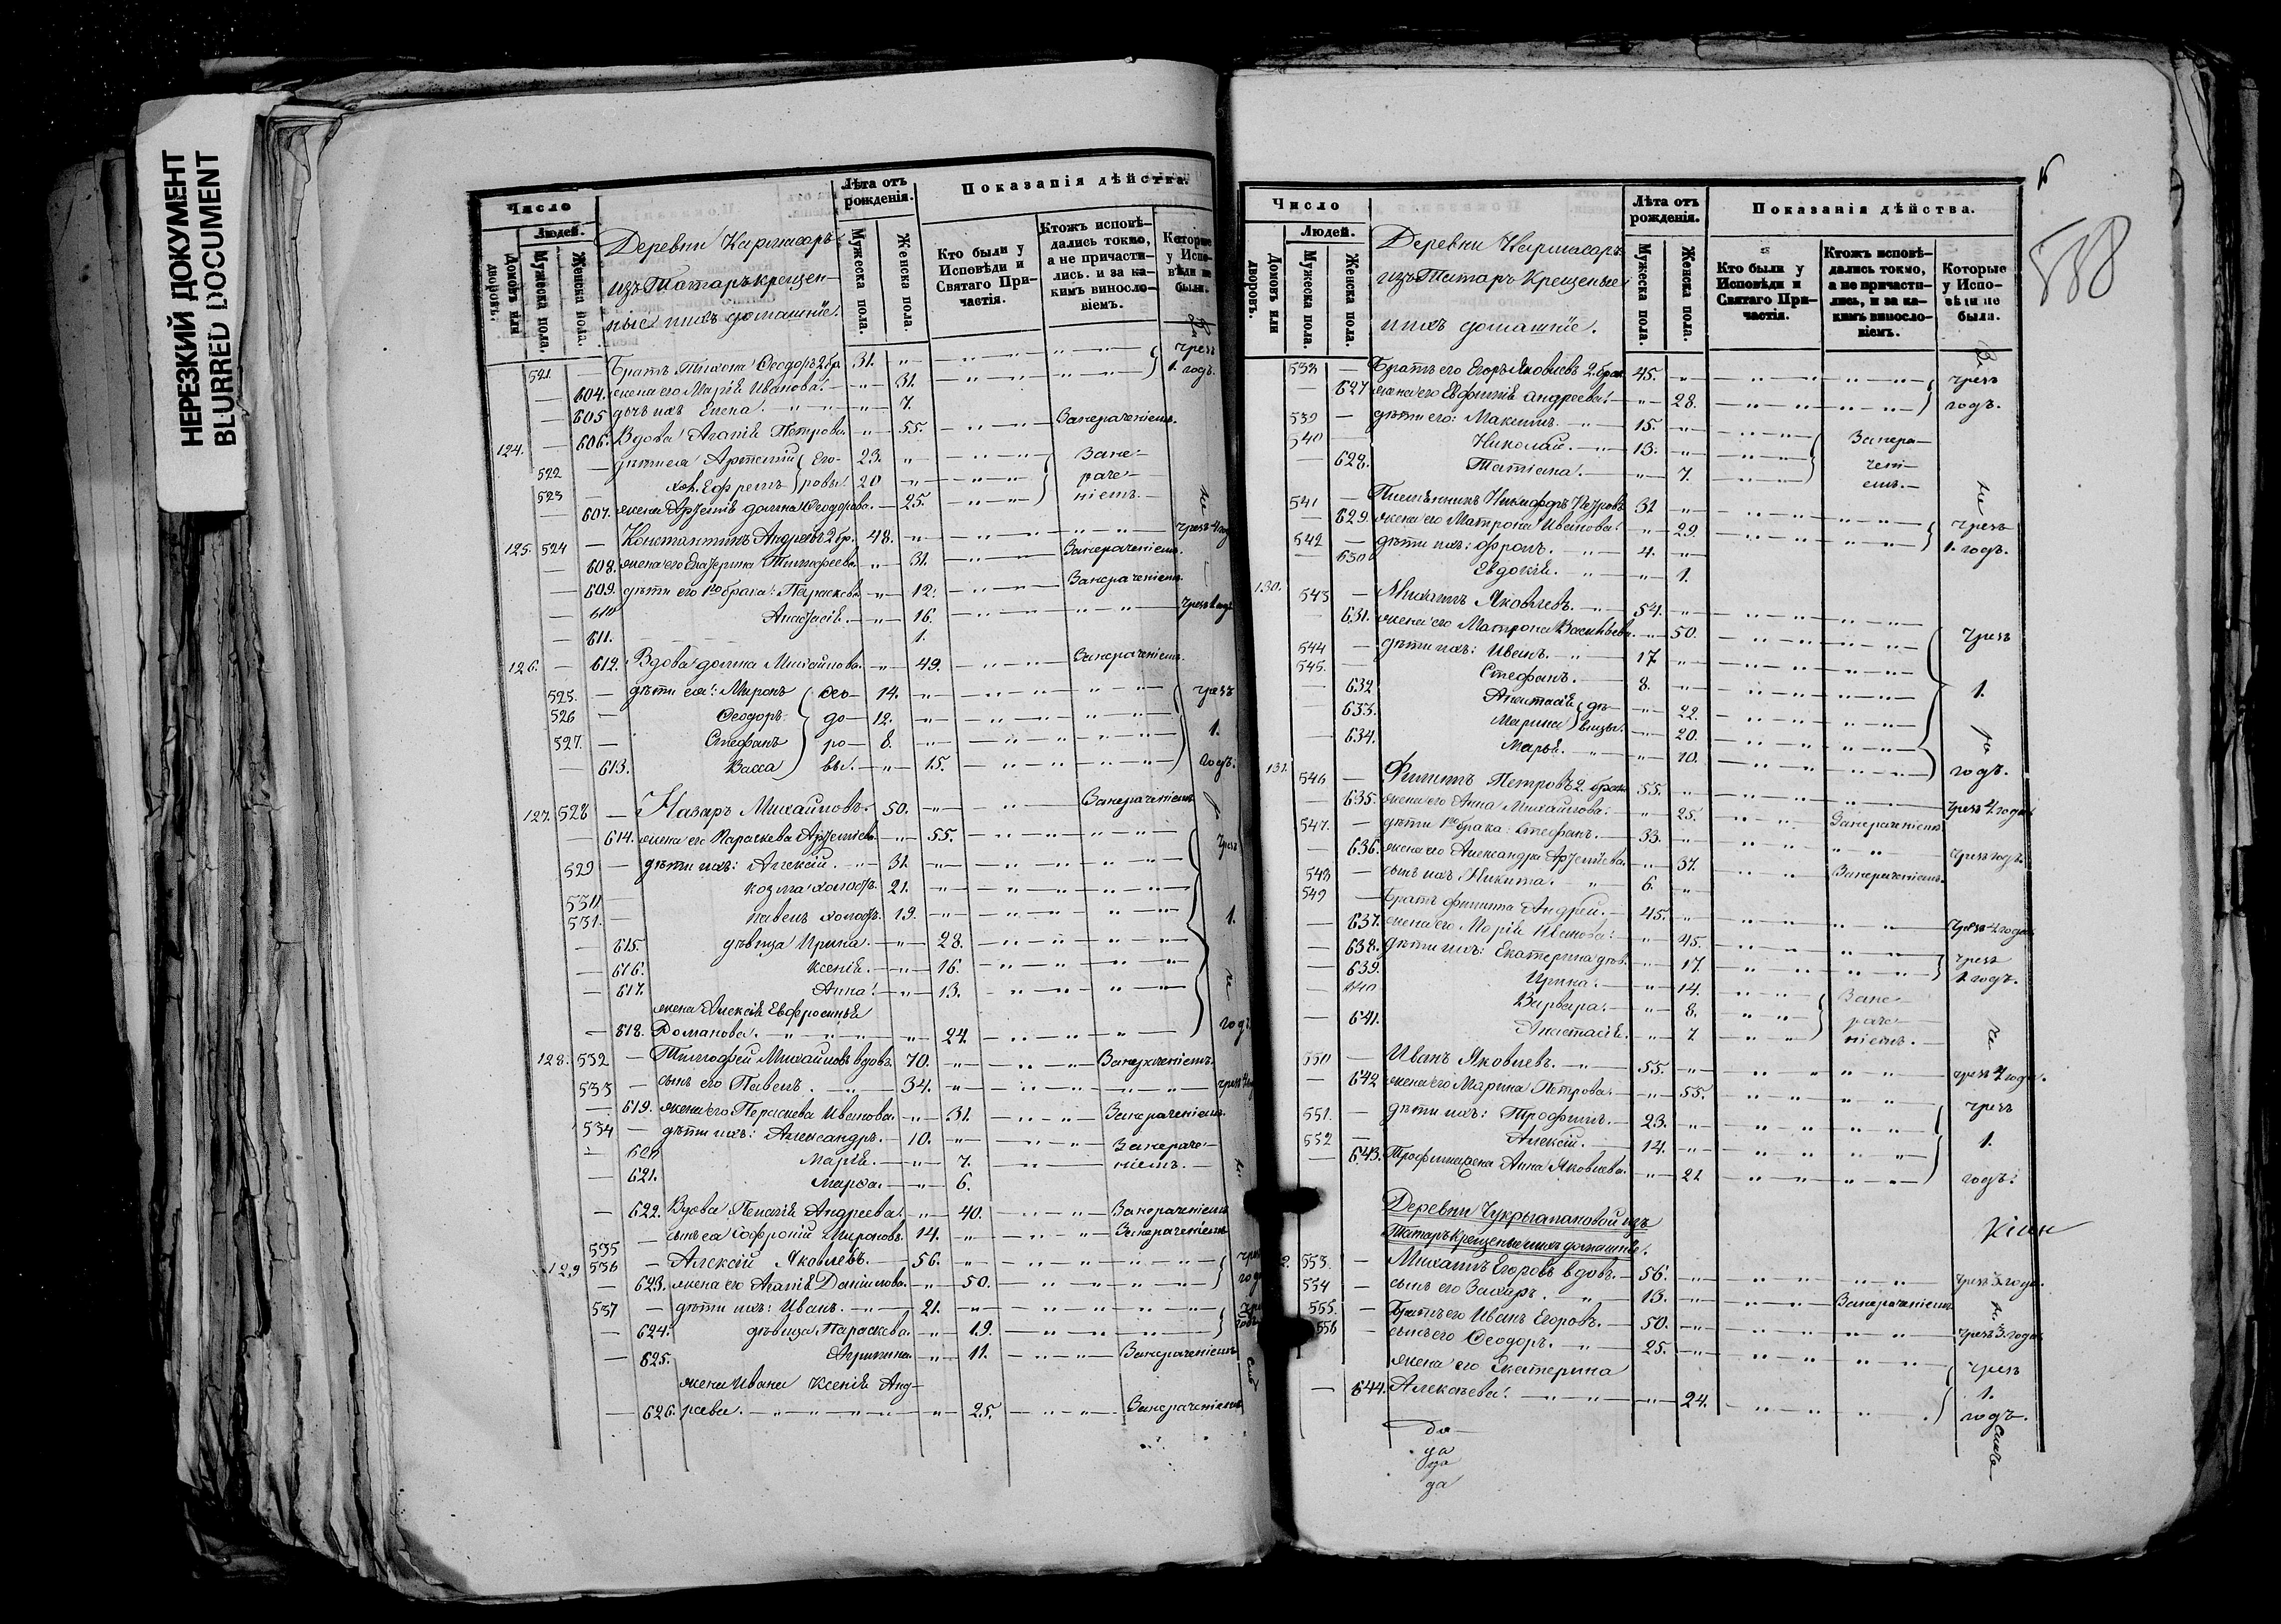 НЕРЕЗКИЙ ДОКУМЕНТ
BLURRED DOCUMENT
Число
Людей.
Домовъ или дворовъ.
Мужеска пола.
Женска пола.
Деревни Кармасаръ
изъ Татаръ крещен-
ные и ихъ домашніе.
Лѣта отъ рожденія.
Мужеска пола.
Женска пола.
Показанія дѣйства.
Кто были у Исповѣди и Святаго Причастія.
Ктожъ исповѣдались токмо, а не причастились. и за какимъ винословіемъ.
Которые у Исповѣди не были.
521 — Братъ Тихона Ѳеодоръ 2 бр. 31. чрезъ
— 604. жена его Марія Иванова. 31. 1. годъ.
— 605 дочь ихъ Елена. 7.
124. — 606. Вдова Агапія Петрова 55. За нераченіемъ.
522 — дѣти ея Артемій Его- 23. За не-
523 — хол. Ефремъ ровы. 20 раче-
— 607. жена Артемія Домна Ѳеодорова. 25. ніемъ.
125. 524 — Константинъ Андреевъ 2 бр. 48.
— 608. жена его Екатерина Тимофеева 31. За нераченіемъ.
— 609. дѣти его 1го брака: Параскева 12. За нераченіемъ.
— 610 Анастасія. 16.
— 611. 1.
126. — 612. Вдова Домна Михайлова. 49. За нераченіемъ.
525. — дѣти ея: Миронъ Ѳео- 14. чрезъ
526 — Ѳеодоръ до- 12.
527. — Стефанъ ро- 8. 1.
— 613. Васса вы. 15. годъ.
127. 528 — Назаръ Михайловъ. 50. За нераченіемъ
— 614. жена его Параскева Артемьева. 55. чрезъ
529 — дѣти ихъ: Алексій. 31.
530 — Козма холостъ. 21.
531. — Павелъ холостъ. 19. 1.
— 615. дѣвица Ирина. 28.
— 616. Ксенія. 16.
— 617. Анна. 13.
жена Алексія Евфросинія
— 618. Романова. 24. годъ
128. 532 — Тимофей Михайловъ вдовъ. 70. За нераченіемъ.
533 — сынъ его Павелъ. 34.
— 619. жена его Параскева Иванова. 31. За нераченіемъ.
534 — дѣти ихъ: Александръ. 10. За нераче-
— 620 Марія. 7. ніемъ.
— 621. Марѳа. 6.
— 622. Вдова Пелагія Андреева. 40. За нераченіемъ
535 — сынъ ея Софроній Мироновъ. 14. За нераченіемъ
129 536 — Алексій Яковлевъ. 56.
— 623. жена его Агапія Даніилова. 50.
537 — дѣти ихъ: Иванъ. 21.
— 624. дѣвица Параскева. 19.
— 625. Агрипина. 11. За нераченіемъ
жена Ивана Ксенія Анд-
— 626. реева. 25. За нераченіемъ
588
Число
Людей.
Домовъ или дворовъ.
Мужеска пола.
Женска пола.
Деревни Кармасаръ
изъ Татаръ крещеные
и ихъ домашніе.
Лѣта отъ рожденія.
Мужеска пола.
Женска пола.
Показанія дѣйства.
Кто были у Исповѣди и Святаго Причастія.
Ктожъ исповѣдались токмо, а не причастились, и за какимъ винословіемъ.
Которые у Исповѣди не были.
538 — Братъ его Егоръ Яковлевъ 2. брак. 45. чрезъ
627 жена его Евфимія Андреева. 28. годъ.
539 — дѣти его: Максимъ. 15. За нера-
540 Николай. 13. чені-
— 628. Татіана. 7. емъ.
541 — Племянникъ Никифоръ Петровъ 31 чрезъ
— 629. жена его Матрона Иванова. 29. 1. годъ.
542 — дѣти ихъ: Фролъ. 4.
— 630 Евдокія. 1.
130. 543 — Михаилъ Яковлевъ. 54.
— 631. жена его Матрона Васильева. 50. чрезъ
544 — дѣти ихъ: Иванъ. 17
545. Стефанъ. 8.
— 632 Анастасія дѣ- 22. 1.
— 633. Марина вицы. 20.
— 634. Марья. 10. годъ.
131. 546 — Филипъ Петровъ 2 брак. 55. чрезъ 4 года
— 635. жена его Анна Михайлова. 25. За нераченіемъ
547. — дѣти 1го брака: Стефанъ. 33. чрезъ годъ
— 636. жена его Александра Артемьева. 37. За нераченіемъ.
548 — сынъ ихъ Никита. 6.
549 — Братъ Филипа Андрей. 45. чрезъ 4 года
— 637. жена его Марія Иванова. 45. чрезъ
— 638. дѣти ихъ: Екатерина дѣв. 17. 1. годъ.
— 639. Ирина. 14. За не-
— 640 Варвара. 8. раче-
— 641. Анастасія. 7 ніемъ.
550 — Иванъ Яковлевъ. 55. чрезъ 4 года.
— 642 жена его Марина Петрова. 55. чрезъ
551. — дѣти ихъ: Трофимъ. 23. 1.
552 — Алексій. 14.
— 643. Трофима жена Анна Яковлева. 21 годъ.
Деревни Чукрыалановой изъ
Татаръ крещеные и ихъ домашніе.
553. — Михаилъ Егоровъ вдовъ. 56. чрезъ 3 года.
554 — сынъ его Захаръ. 13. За нераченіемъ
555. — Братъ его Иванъ Егоровъ. 50. чрезъ 3 года
556 — сынъ его Ѳеодоръ. 25. чрезъ
жена его Екатерина 1.
— 644. Алексѣева. 24. годъ.